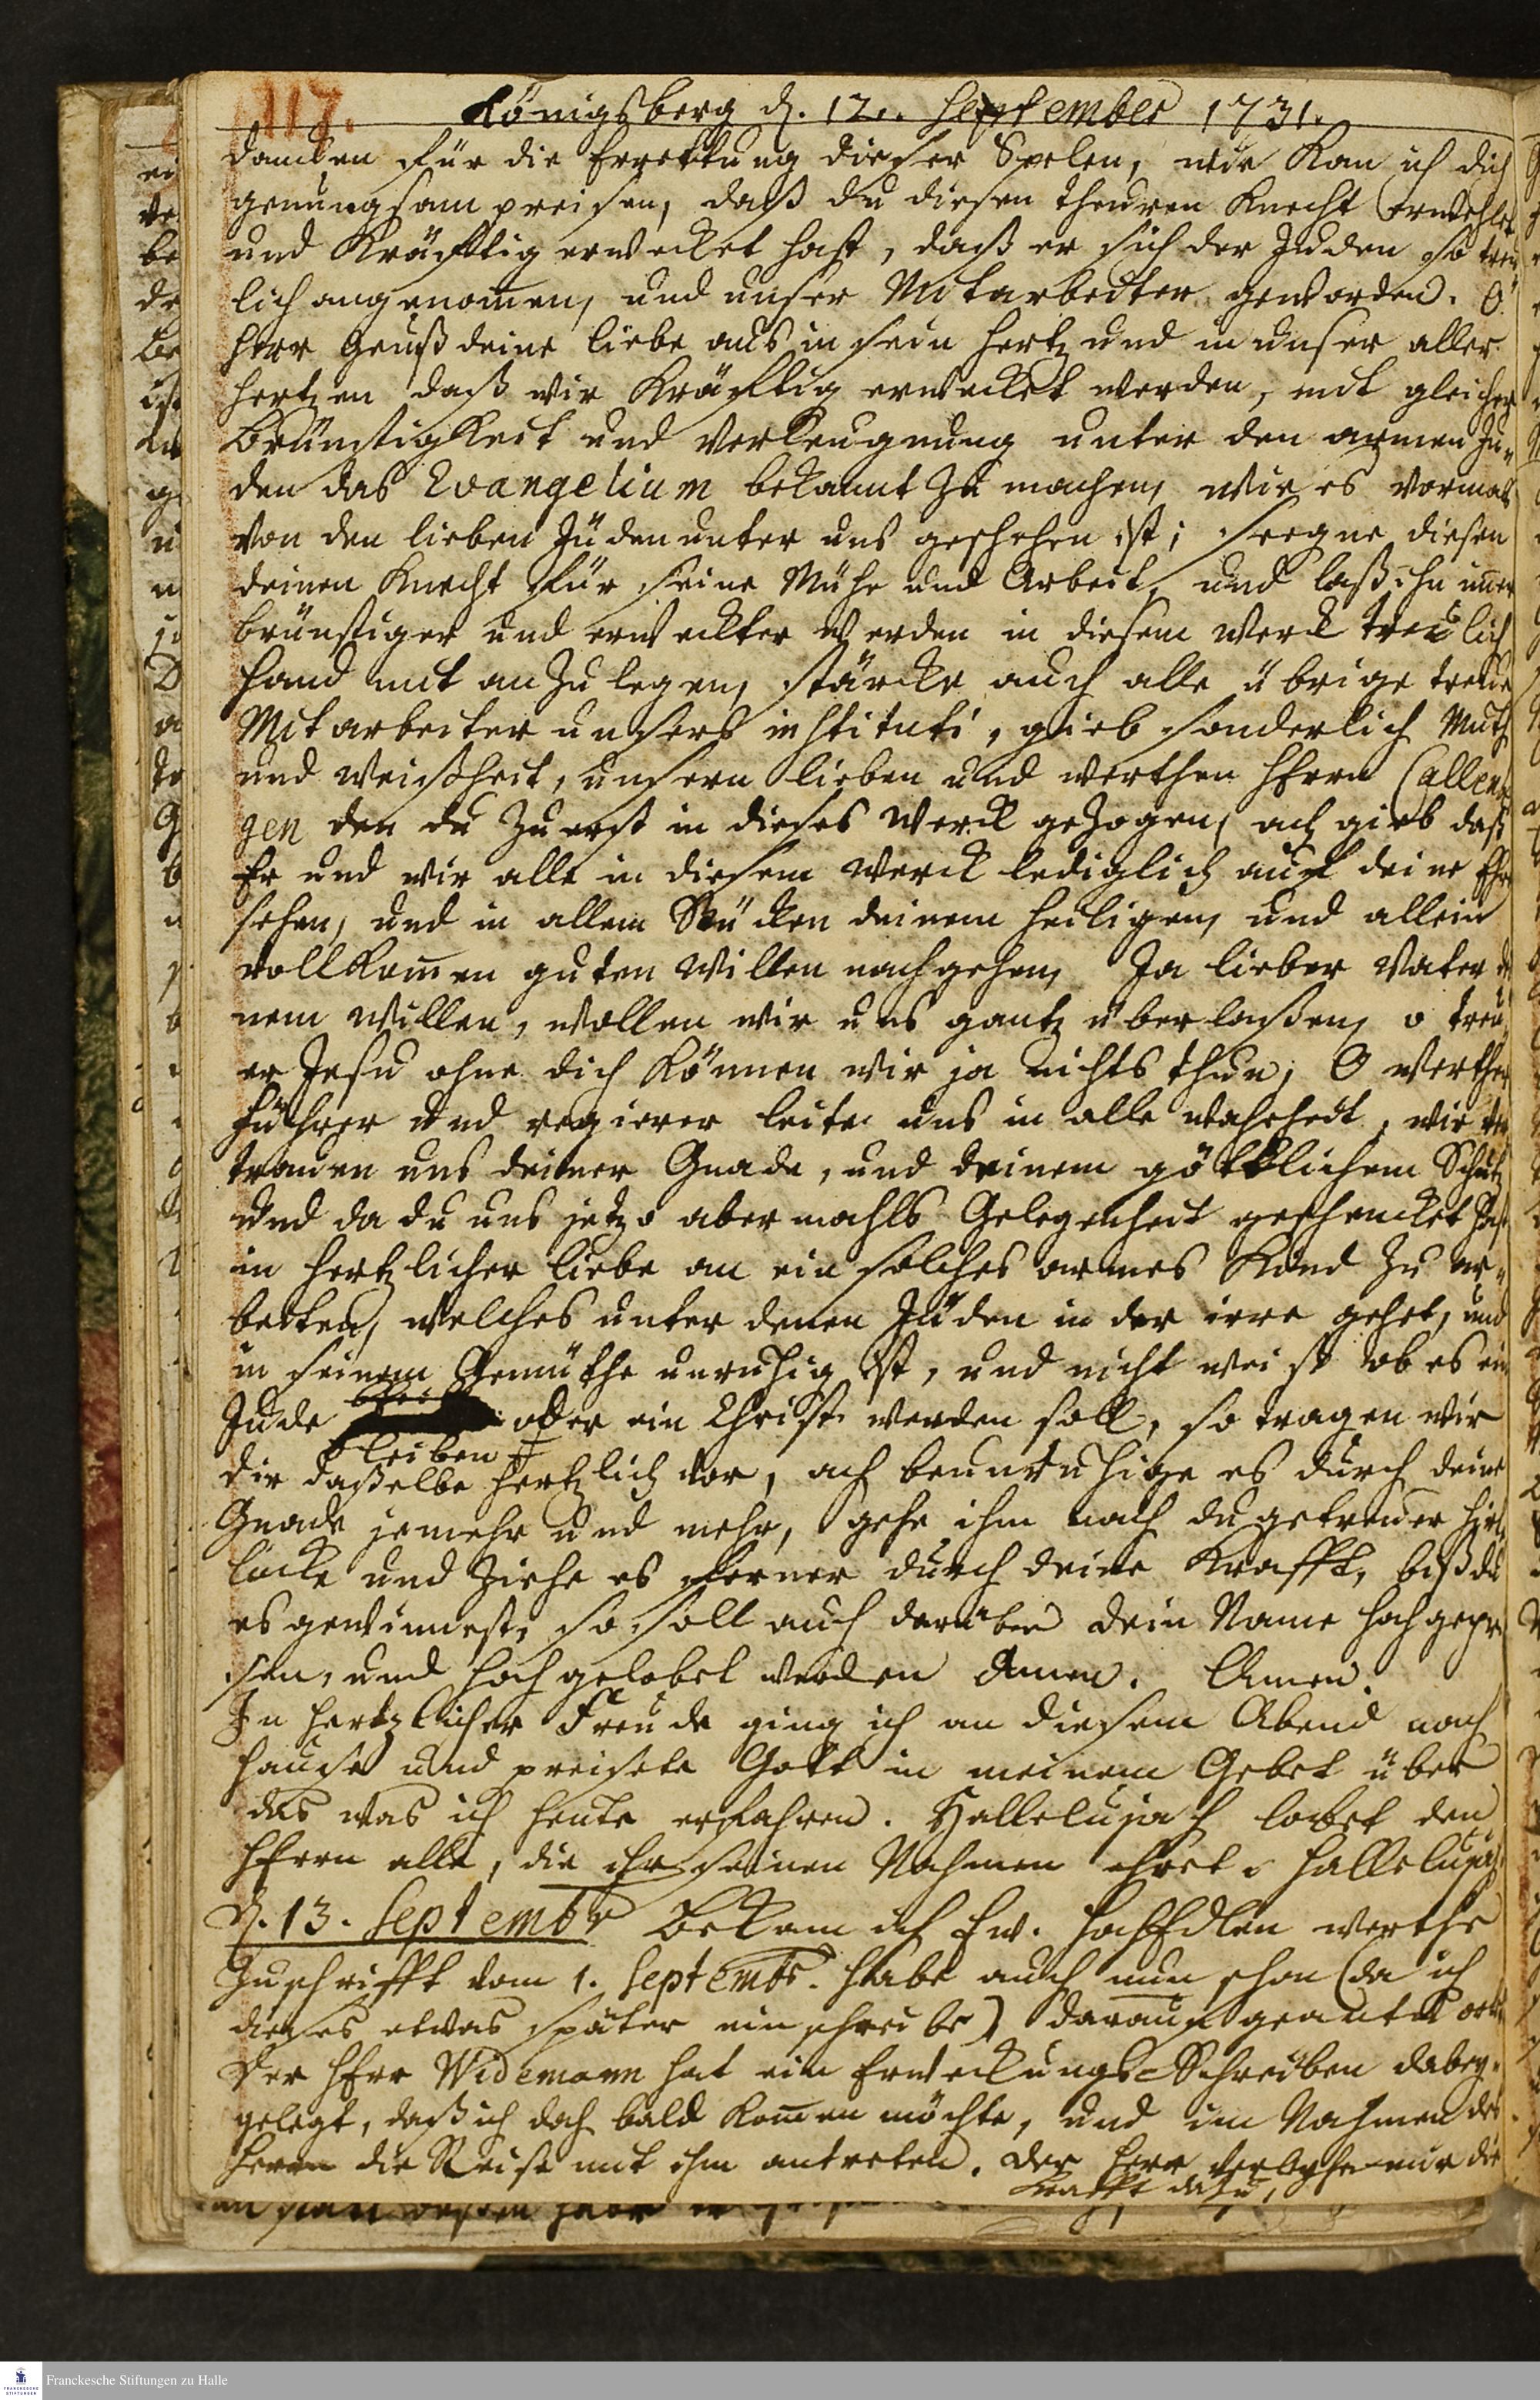 117.
Königsberg d. 12. September 1731.
dancken für die Errettung dieser Seelen, nie kan ich dich
genungsam preisen, daß du diesen theuren Knecht erwehlet
und kräfftig erwecket hast, daß er sich der Juden so treu
lich angenom̄en, und unser Mitarbeiter geworden. O
Herr geuß deine liebe aus in sein Hertz und in unser aller
Hertzen daß wir kräfftig erwecket werden, mit gleicher
Brünstigkeit und Verleugnung unter den armen Ju-
den das Evangelium bekannt zu machen, wie es vormals
von den lieben Juden unter uns geschehen ist; seegne diesen
deinen Knecht für seine Mühe und Arbeit, und laß ihn im̄er
brünstiger und erweckter werden in diesem Werck treulich
Hand mit an zu legen, stärcke auch alle übrige treue
Mitarbeiter unsers instituti, gieb sonderlich Muth
und Weißheit, unsern lieben und werthen HErrn Callenber
gen den du zuerst in dieses Werck gezogen, ach gieb daß
Er und wir alle in diesem Werck lediglich auf deine Ehre
sehen, und in allem Stücken deinem heiligen, und allein
vollkom̄en guten Willen nachgehen, Ja lieber Vater dei
nem Willen, wollen wir uns gantz überlaßen, o treu-
er Jesu ohne dich können wir ja nichts thun, O werther
Führer und regierer leite uns in alle wahrheit, wir ver
trauen uns deiner Gnade, und deinem göttlichem Schutz
und da du uns jetzo abermahls Gelegenheit geschencket hast
in hertzlicher liebe an ein solches armes Kind zu ar-
beiten, welches unter denen Juden in der irre gehet, und
in seinem Gemüthe unruhig ist, und nicht weiß ob es ein
Jude bleiben oder ein Christ werden soll, so tragen wir
dir daßelbe hertzlich vor, ach beunruhige es durch deine
Gnade jemehr und mehr, gehe ihm nach du getreuer Hirt,
locke und ziehe es ferner durch deine Krafft, biß du
es gewinnest, so soll auch darüber dein Name hochgeprie
sen, und hoch gelobet werden Amen. Amen.
In hertzlicher Freude ging ich an diesem Abend nach
Hause und preisete Gott in meinem Gebet über
das was ich heute erfahren. Hallelujah lobet den
HErrn alle, die ihr seinen Nahmen ehret Hallelujah.
d. 13. Septembr bekam ich Ew. HochEdlen werthe
Zuschrifft vom 1. Septembr. habe auch nun schon (da ich
dieses etwas später einschreibe) darauf geantwort
Der HErr Widemann hat ein Erweckungs-Schreiben dabey
gelegt, daß ich doch bald kom̄en möchte, und im Nahmen des
Herrn die Reise mit ihm antreten. Der Herr verleyhe nur die
Krafft dazu,
Franckesche Stiftungen zu Halle